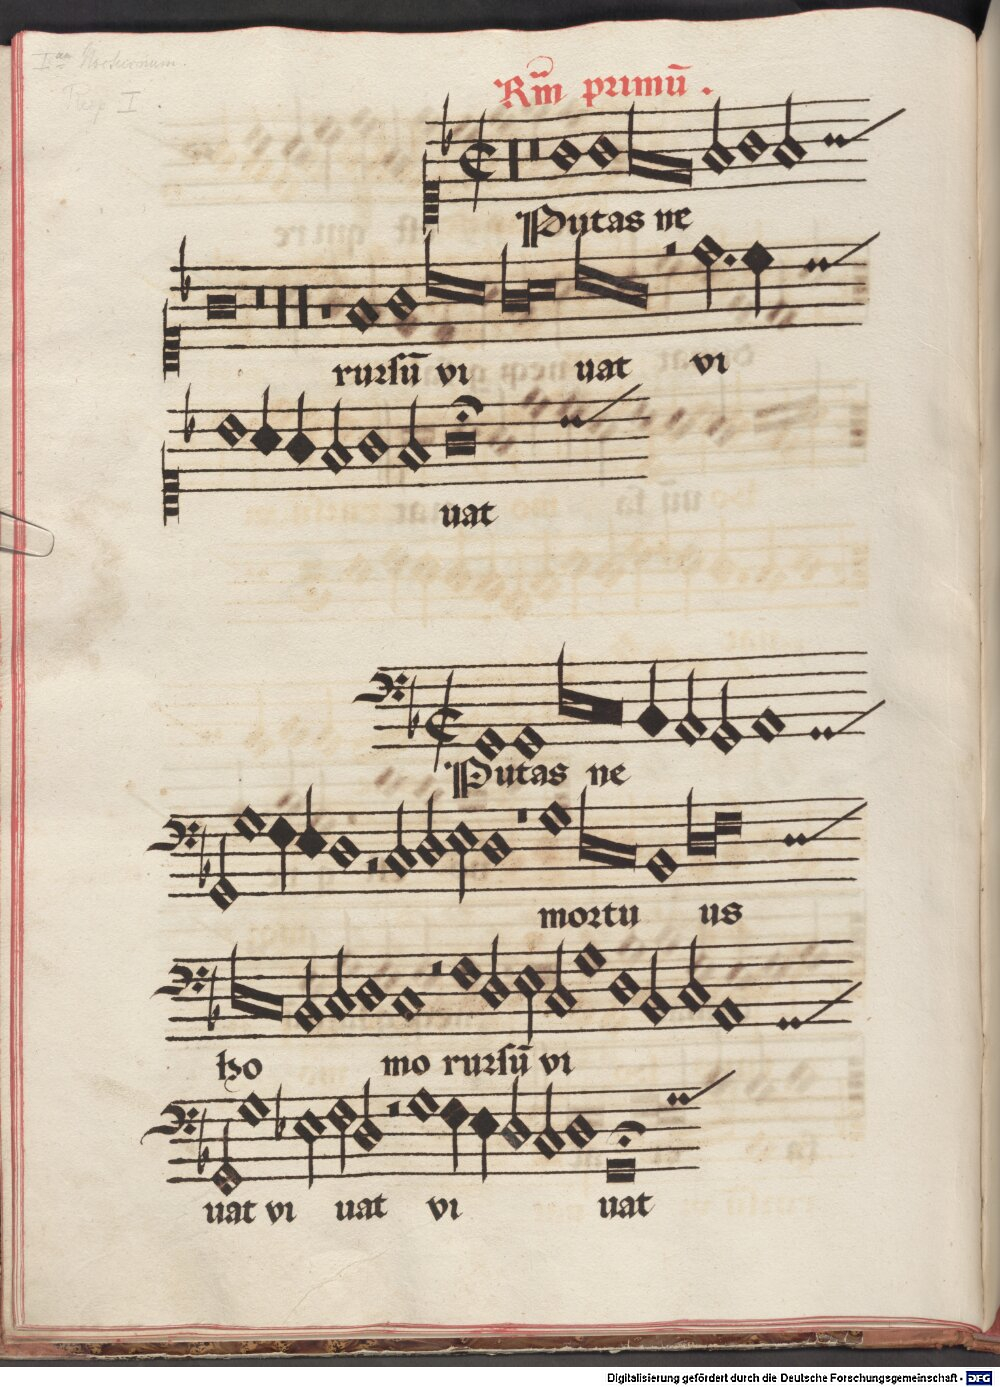 I. Nocturnum.
I
R̃m primũ .
Putas ne
rursũ vi uat vi
uat
Putas ne
mortu us
ho mo rursũ vi
uat vi uat vi uat
Digitalisierung gefördert durch die Deutsche Forschungsgemeinschaft - DFG